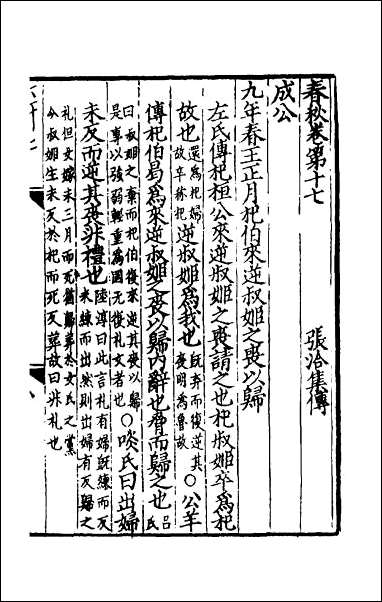 春秋卷第十七 張洽集傳
成公
九年春王正月杞伯來逆叔姬之喪以歸
左氏傳杞桓公來逆叔姬之喪請之也杞叔姬卒為杞
故也還為杞婦故卒称杞逆叔姬為我也既弃而復逆其喪明為魯故○公羊
傳杞伯曷為來逆叔姬之喪以歸内辭也脅而歸之也呂氏
曰叔姬之棄而杞伯復來逆其喪以歸是專以強弱輕重為國无復礼文者也○啖氏曰出婦
未反而逆其喪非禮也陸淳曰此言礼有婦既練而反未練而出然則出婦有反歸之
礼但女嫁未三月而死歸葬於女氏之黨今叔姬生未反於杞而死反葬故曰非礼也